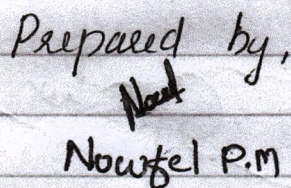 Prepared by,
Noufel P.M